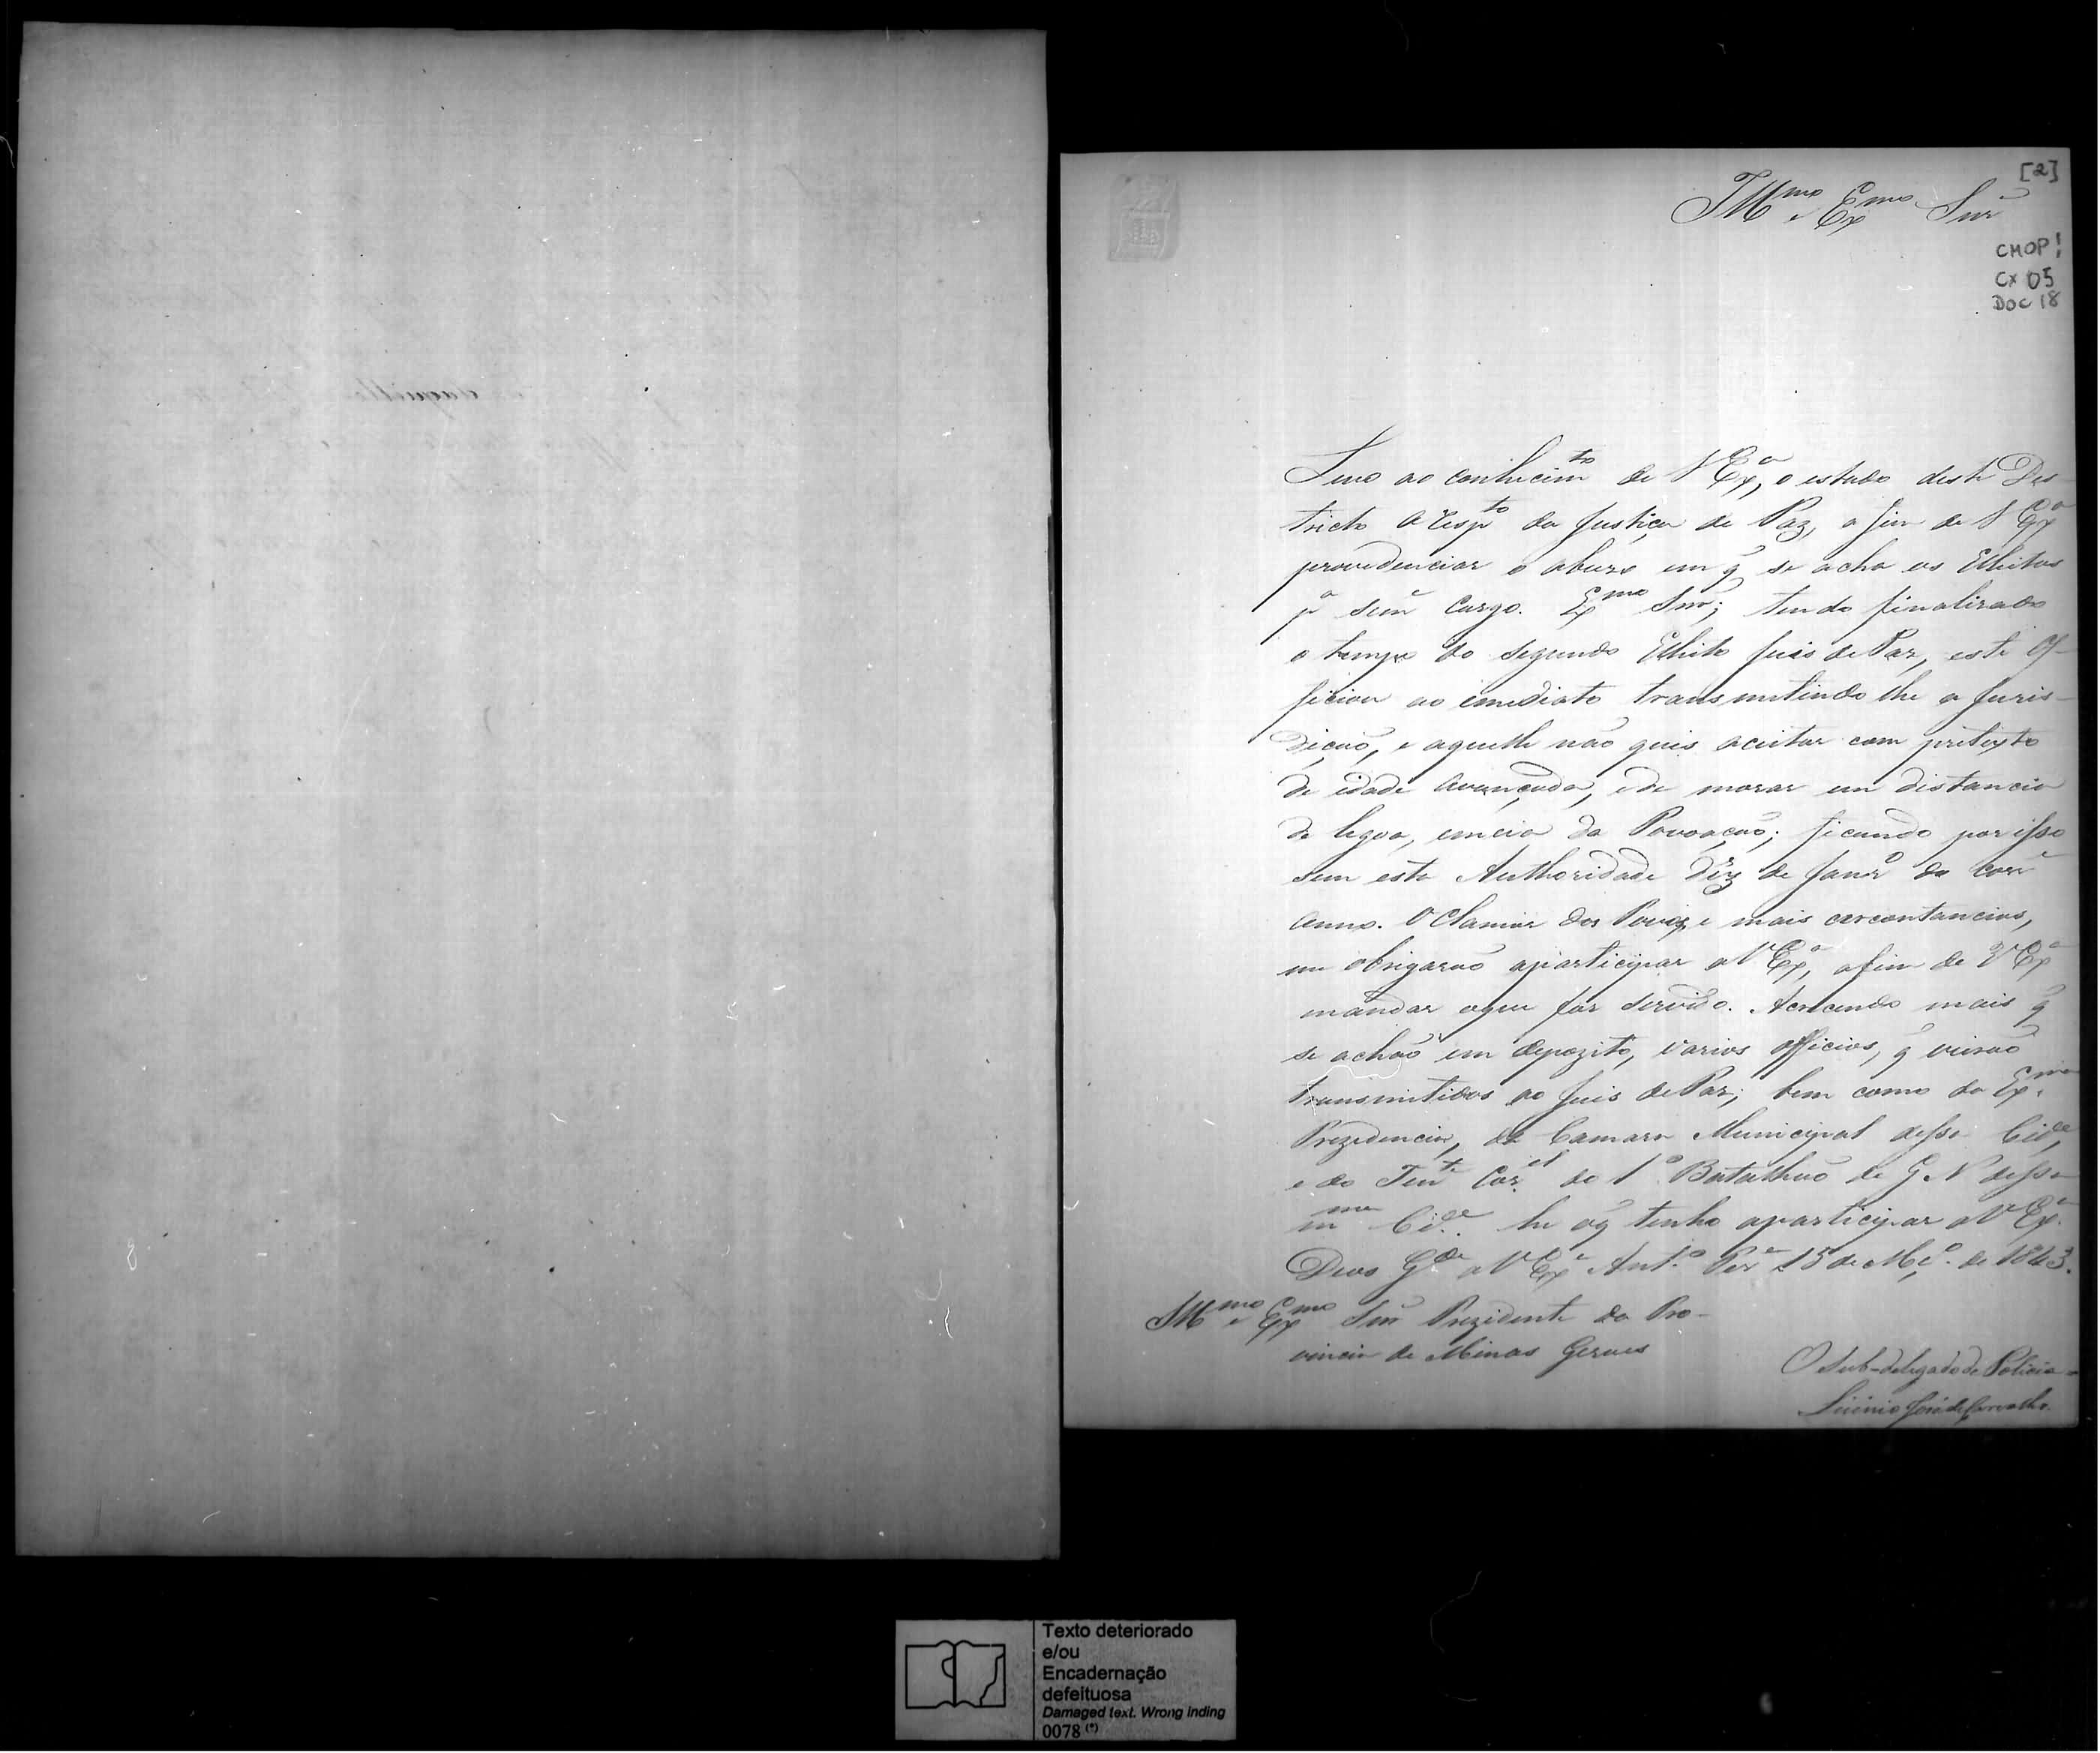 [2]
Illmo e Exmo Snr
CMOP!
CX 05
DOC 18
Levo ao conhecimto de V Exa, o estado deste Des-
tricto a respto da Justiça de Paz, a fim de V Exa
providenciar o abuzo em q̃ se acha os Elleitos
pa sem̃ Cargo. Exmo Snr; tendo finalizado
o tempo do segundo Elleito Juis de Paz, este Of-
ficiou ao emediato transmitindo lhe a Juris-
dição, e aquelle não quis aceitar com pretexto
de idade avançada, e de morar em distancia
de legoa, emeia da Povoação; ficando por isso
sem esta Authoridade dêz de Janro do corre
anno. O Clamor dos Povos, e mais cercontancias,
me obrigarão aparticipar a V Exa, afim de V Exa
mandar oque for servido. Acrecendo mais q̃
se achão em depozito, varios officios, q̃ vierão
transmitidos ao Juis de Paz; bem como da Exma
Prezidencia, da Camara Municipal dessa Cide,
e do Tente Corel do 1o Batalhão de G N dessa
mma Cide. he oq̃ tenho aparticipar a V Exa.
Deos Gde a V Exa Anto Pera 15 de Mço. de 1843.
Illmo e Exmo Snr Prezidente da Pro-
vincia de Minas Geraes
O Sub-delegado de Policia
José de Carvalho.
Texto deteriorado
e/ou
Encadernação
defeituosa
Damaged text. Wrong inding
0078 (*)